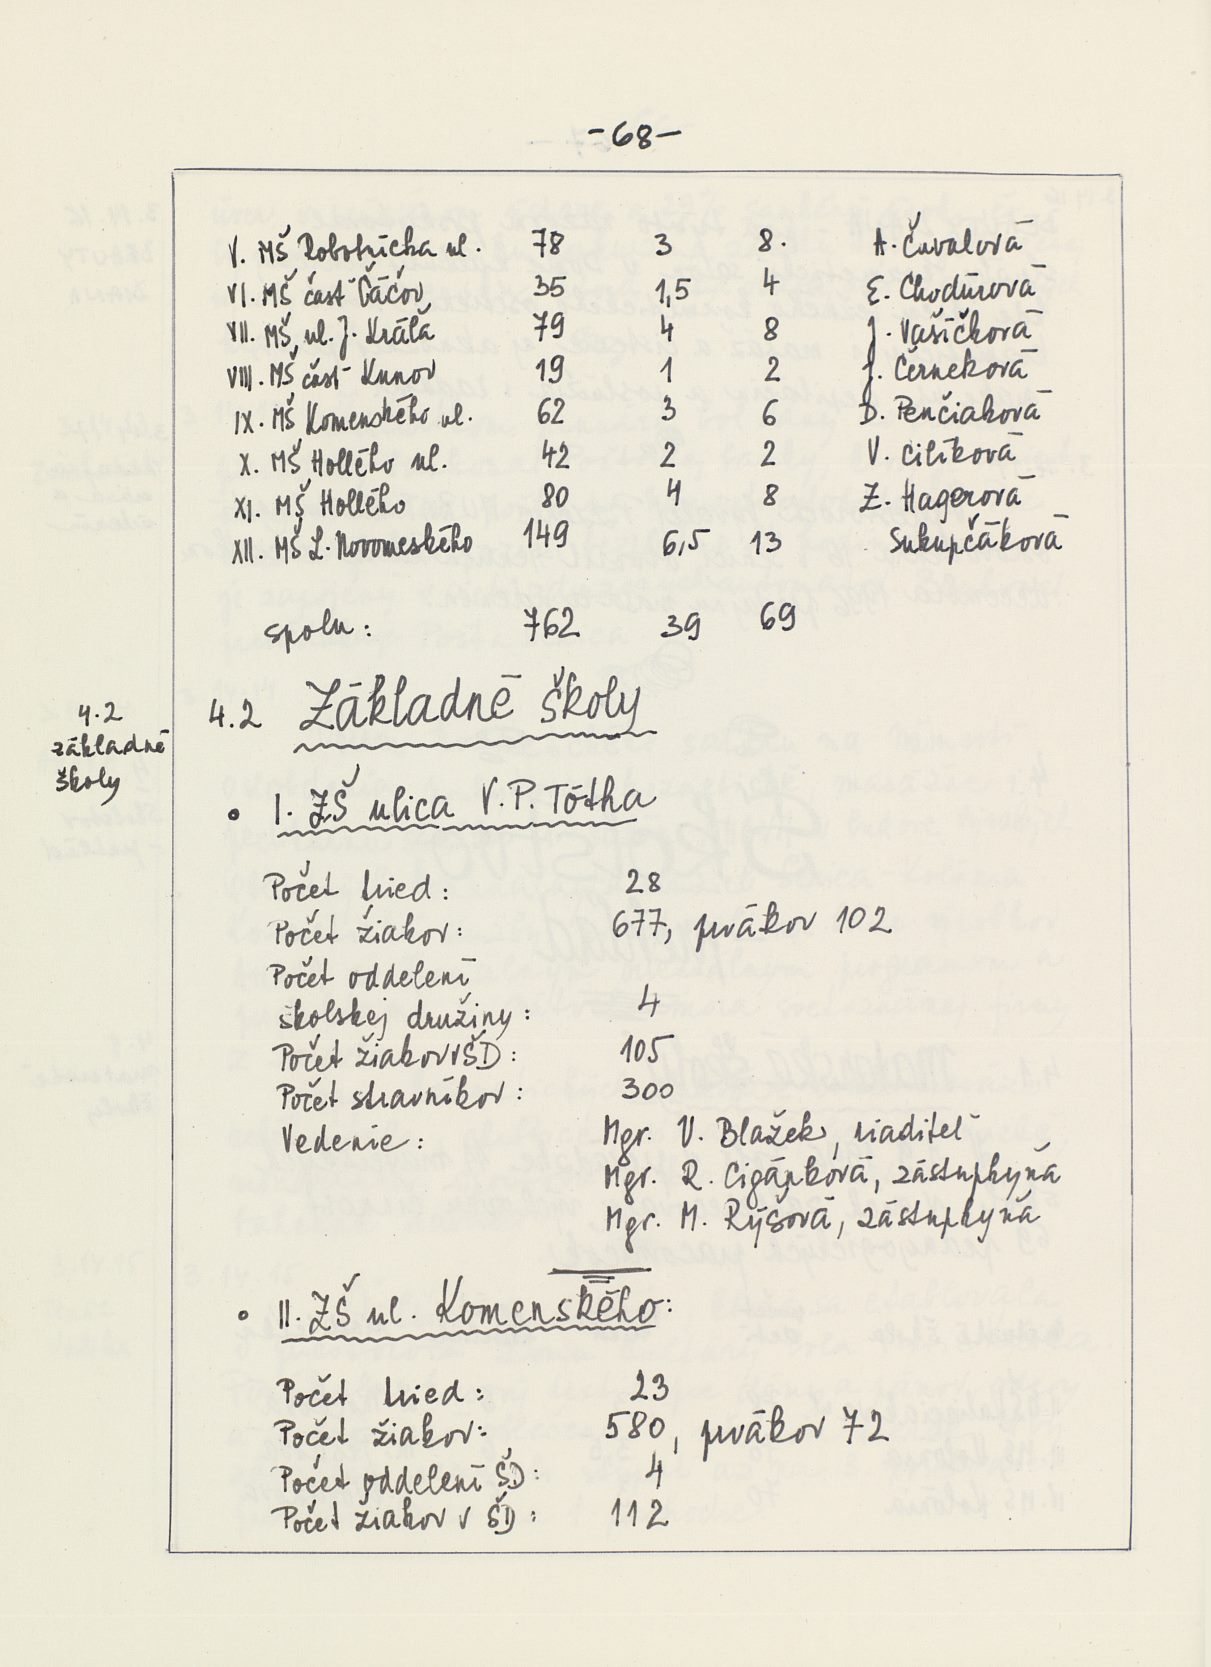 -68-
V. MŠ Robotnícka ul. 78 3 8. A. Čuvalová
VI. MŠ časť Čáčov 35 1,5 4 E. Chodúrová
VII. MŠ, ul. J. Kráľa 79 4 8 J. Vašíčková
VIII. MŠ časť Kunov 19 1 2 J. Černeková
IX. MŠ Komenského ul. 62 3 6 D. Penčiaková
X. MŠ Hollého ul. 42 2 2 V. Cilíková
XI. MŠ Hollého 80 4 8 Z. Hagerová
XII. MŠ L. Novomeského 149 6,5 13 Sukupčáková
spolu: 762 39 69
4.2
základné
školy
4.2 Základné školy
• I. ZŠ ulica V. P. Tótha
Počet tried: 28
Počet žiakov: 677, prvákov 102
Počet oddelení
školskej družiny: 4
Počet žiakov v ŠD: 105
Počet stravníkov: 300
Vedenie: Mgr. V. Blažek, riaditeľ
Mgr. R. Cigánková, zástupkyňa
Mgr. M. Rýšová, zástupkyňa
• II. ZŠ ul. Komenského:
Počet tried: 23
Počet žiakov: 580, prvákov 72
Počet oddelení ŠD: 4
Počet žiakov v ŠD: 112